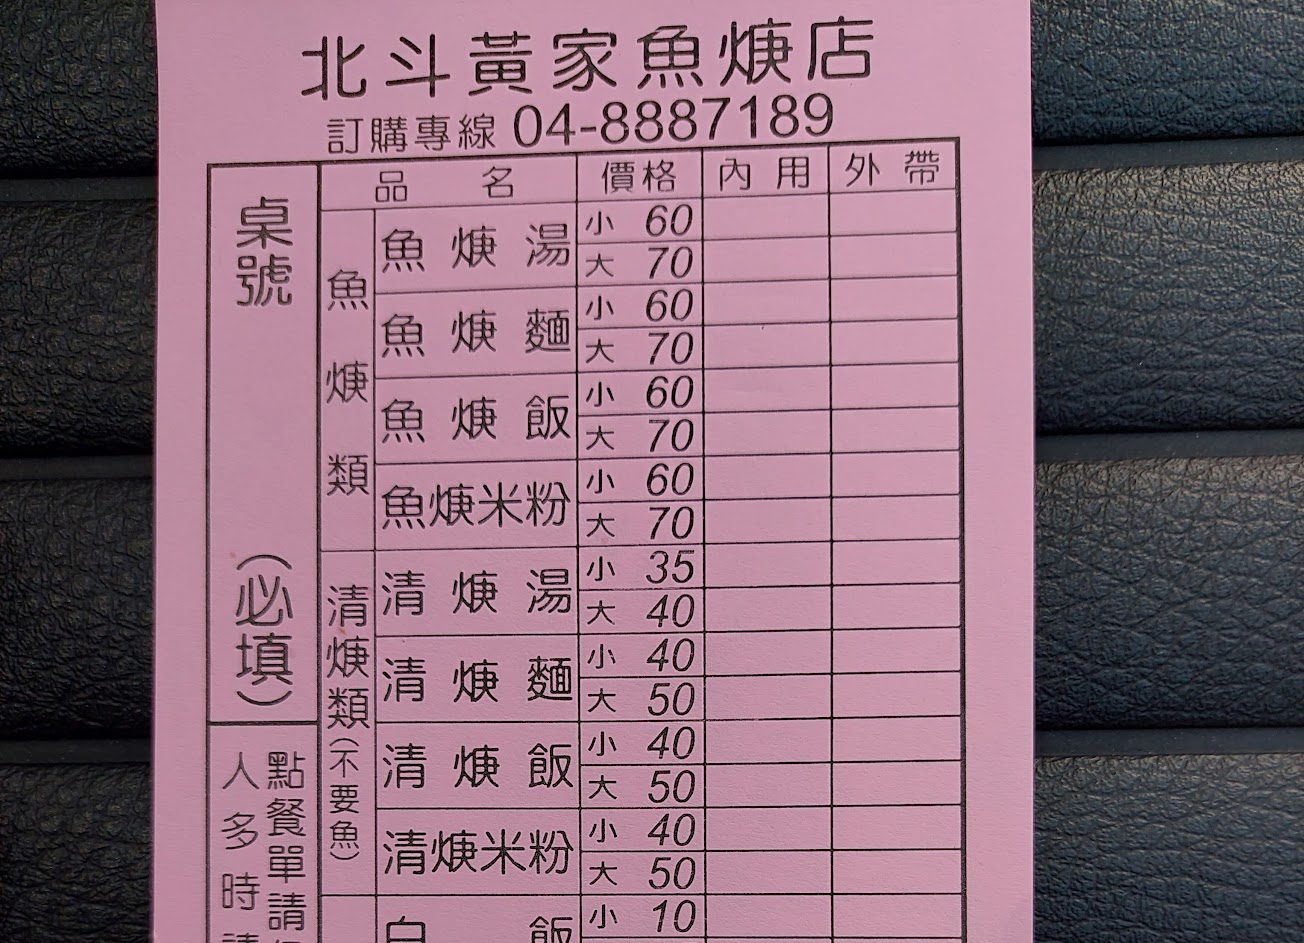 北斗黃家魚焿店
訂購專線 04-8887189
桌號 （必填）
品名 價格 內用 外帶
魚焿類
魚焿湯 小 60
大 70
魚焿麵 小 60
大 70
魚焿飯 小 60
大 70
魚焿米粉 小 60
大 70
清焿類（不要魚）
清焿湯 小 35
大 40
清焿麵 小 40
大 50
清焿飯 小 40
大 50
清焿米粉 小 40
大 50
白飯 小 10
點餐單請
人多時請